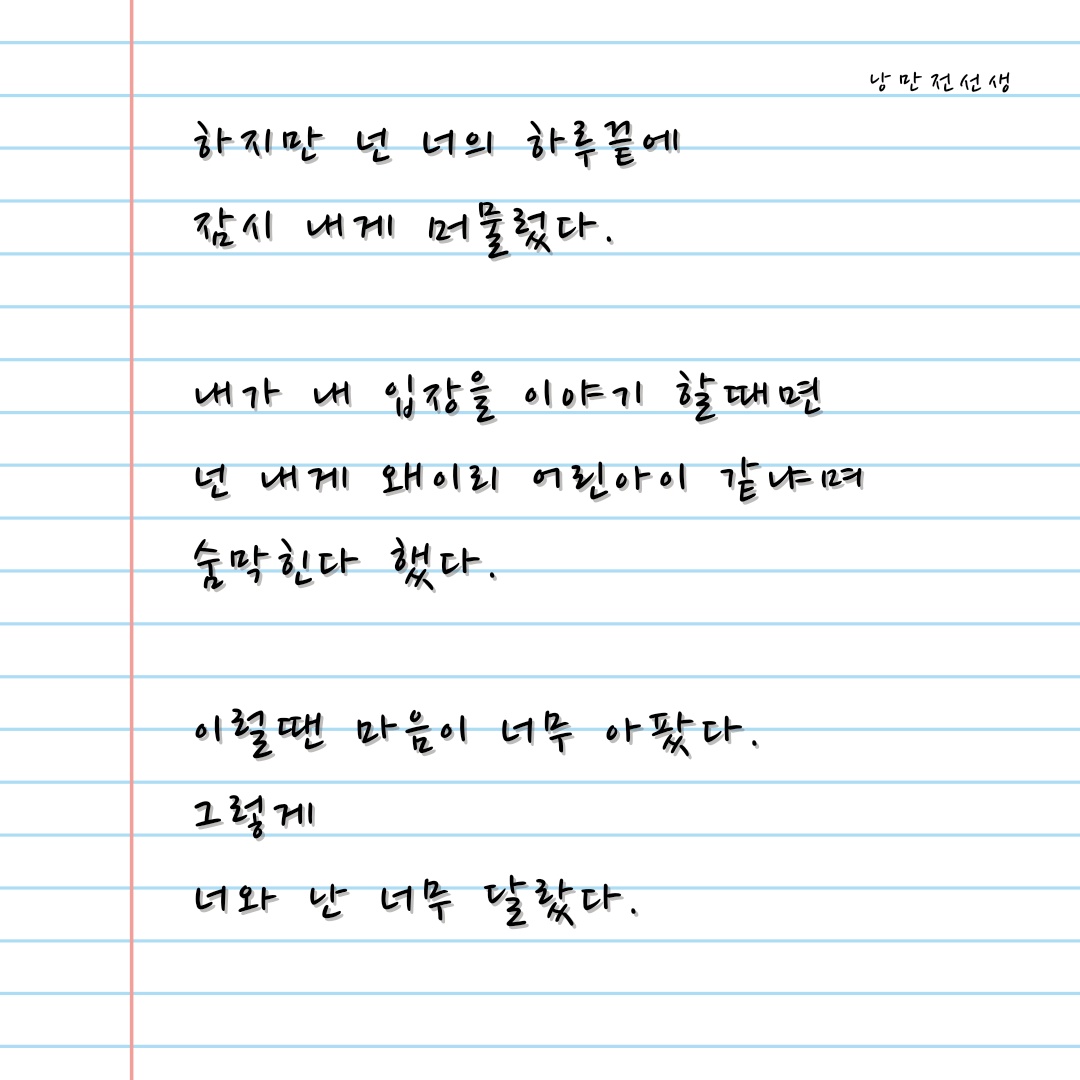 낭만전선생
하지만 넌 너의 하루끝에
잠시 내게 머물렀다.
내가 내 입장을 이야기 할때면
넌 내게 왜이리 어린아이 같냐며
숨막힌다 했다.
이럴땐 마음이 너무 아팠다.
그렇게
너와 난 너무 달랐다.